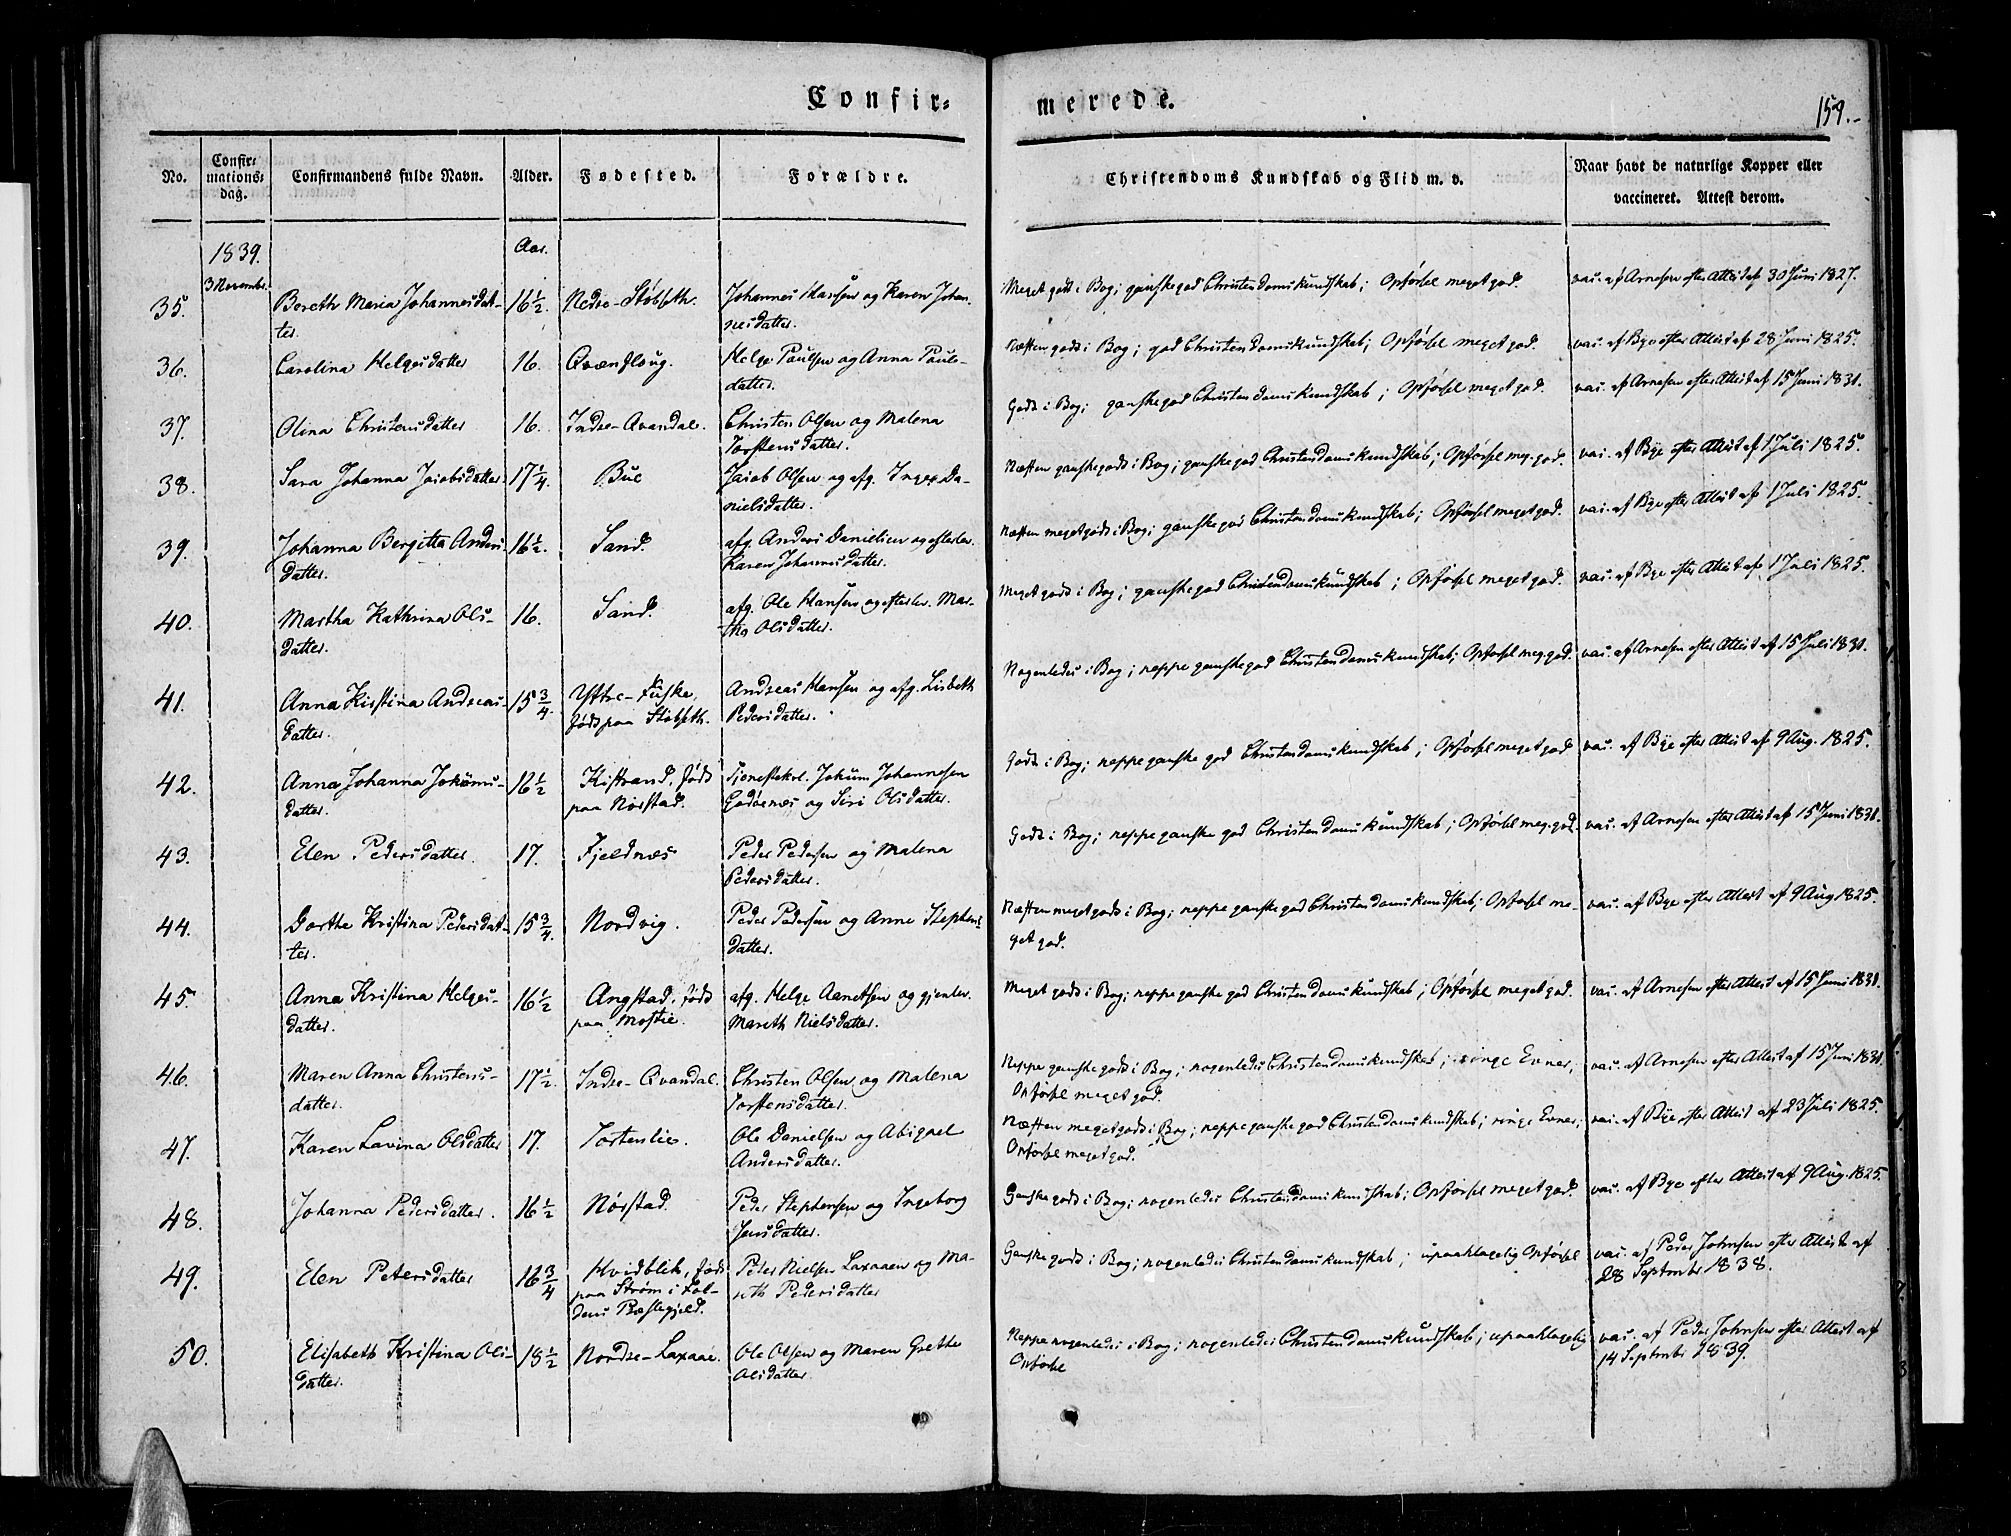 Confir=
merede.
159.
No.
Confir=
mations=
dag.
Confirmandens fulde Navn.
Alder.
Fødested.
Forældre.
Christendoms Kundskab og Flid m. v.
Naar havt de naturlige Kopper eller
vaccineret. Attest derom.
1839.
Aar.
3 Novembr.
35. Bereth Maria Johannesdat- 16½. Nedre-Støbseth. Johannes Hansen og Karen Johan- Meget godt i Bog; ganske god Christendomskundskab; Opførsel meget god. vac. af Arnesen efter Attest af 30 Juni 1827.
ter. nesdatter.
36. Carolina Helgesdatter 16. Qvænfloug. Helge Paulsen og Anna Pauls- Næsten godt i Bog; god Christendomskundskab; Opførsel meget god. vac. af Bye efter Attest af 28 Juni 1825.
datter.
37. Olina Christensdatter 16. Indre-Qvandal. Christen Olsen og Malena Godt i Bog; ganske god Christendomskundskab; Opførsel meget god. vac. af Arnesen efter Attest af 15 Juni 1831.
Torstensdatter.
38. Sara Johanna Jacobsdatter 17¼. Bue Jacob Olsen og afg. Inger Da- Næsten ganske godt i Bog; ganske god Christendomskundskab; Opførsel meg. god. vac. af Bye efter Attest af 1 Juli 1825.
nielsdatter.
39. Johanna Bergitta Anders- 16½. Sand. afg. Anders Danielsen og efterlev. Næsten meget godt i Bog; ganske god Christendomskundskab; Opførsel meget god. vac. af Bye efter Attest af 1 Juli 1825.
datter. Karen Johannesdatter.
40. Martha Kathrina Ols- 16. Sand. afg. Ole Hansen og efterlev. Mar- Meget godt i Bog; ganske god Christendomskundskab; Opførsel meget god. vac. af Bye efter Attest af 1 Juli 1825.
datter. tha Olsdatter.
41. Anna Kirstina Andreas- 15¾. Yttre-Fuske, Andreas Hansen og afg. Lisbeth Nogenledes i Bog; neppe ganske god Christendomskundskab; Opførsel meg. god. vac. af Arnesen efter Attest af 15 Juli 1831.
datter. født paa Støbseth. Pedersdatter.
42. Anna Johanna Jokums- 16½ Kistrand, født Tjenestekrl. Jokum Johannesen Godt i Bog; neppe ganske god Christendomskundskab; Opførsel meget god vac. af Bye efter Attest af 9 Aug. 1825.
datter. paa Nørstad. Godøenæs og Siri Olsdatter.
43. Elen Pedersdatter. 17. Fjeldnæs Peder Pedersen og Malena Godt i Bog; neppe ganske god Christendomskundskab; Opførsel meg. god. vac. af Arnesen efter Attest af 15 Juni 1831.
Pedersdatter.
44. Dorthe Kristina Pedersdat- 15¾. Nordvig. Peder Pedersen og Anne Stephens- Næsten meget godt i Bog; neppe ganske god Christendomskundskab; Opførsel me- vac. af Bye efter Attest af 9 Aug 1825.
ter. datter. get god.
45 Anna Kristina Helges- 16½ Angstad, født afg. Helge Aanetsen og gjenlev. Meget godt i Bog; neppe ganske god Christendomskundskab; Opførsel meget god. vac. af Arnesen efter Attest af 15 Juni 1831.
datter. paa Mostie. Mareth Nielsdatter.
46. Maren Anna Christens- 17½. Indre-Qvandal. Christen Olsen og Malena Neppe ganske godt i Bog; nogenledes Christendomskundskab; ringe Evner; vac. af Arnesen efter Attest af 15 Juni 1831.
datter. Torstensdatter. Opførsel meget god.
47. Karen Lavina Olsdatter 17. Tortenlie. Ole Danielsen og Abigael Næsten meget godt i Bog; neppe ganske god Christendomskundskab; ringe Evner; vac. af Bye efter Attest af 23 Juli 1825.
Andersdatter. Opførsel meget god.
48. Johanna Pedersdatter. 16½ Nørstad. Peder Stephensen og Ingeborg Ganske godt i Bog; nogenledes Christendomskundskab; Opførsel meget god. vac. af Bye efter Attest af 9 Aug. 1825.
Jensdatter.
49. Elen Petersdatter 16¾ Hvidblik, født Peter Nielsen Laxaaen og Ma- Ganske godt i Bog; nogenledes Christendomskundskab; upaaklagelig Opførsel vac. af Peder Johnsen efter Attest af
paa Strøm i Fol- reth Pedersdatter 28 Septembr 1838.
dens Præstegjeld.
50. Elisabeth Kristina Ols- 18½ Nordre-Laxaae. Ole Olsen og Maren Grethe Neppe nogenledes i Bog; nogenledes Christendomskundskab; upaaklagelig vac. af Peder Johnsen efter Attest af
datter. Olsdatter. Opførsel 14 Septembr 1839.